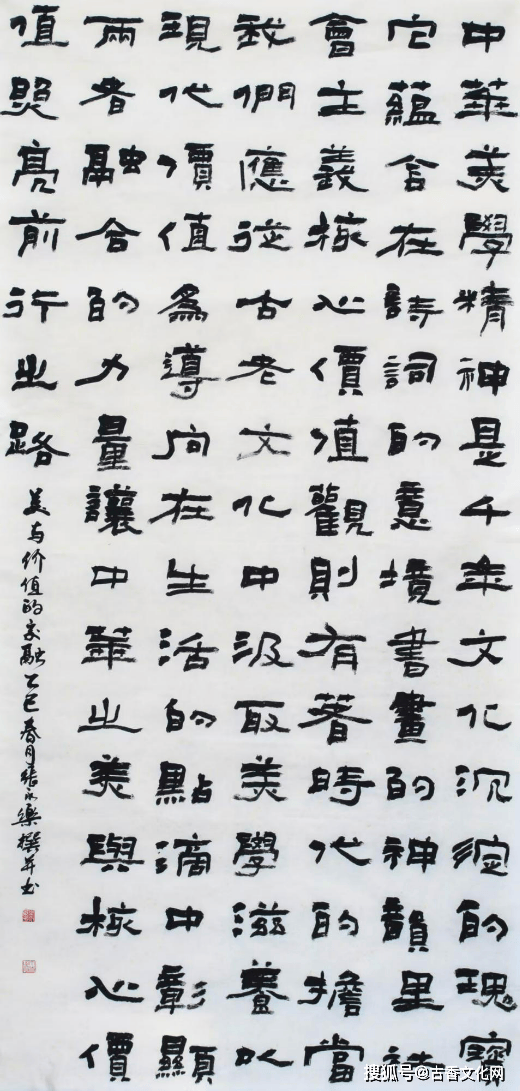 中華美學精神是千年文化沉淀的瑰寶
它蘊含在詩詞的意境書畫的神韻里社
會主義核心價值觀則有著時代的擔當
我們應從古老文化中汲取美學滋養以
現代價值為導向在生活的點滴中彰顯
兩者融合的力量讓中華之美與核心價
值照亮前行之路
美与价值的交融乙巳春月張永樂撰并书
搜狐号@古香文化网